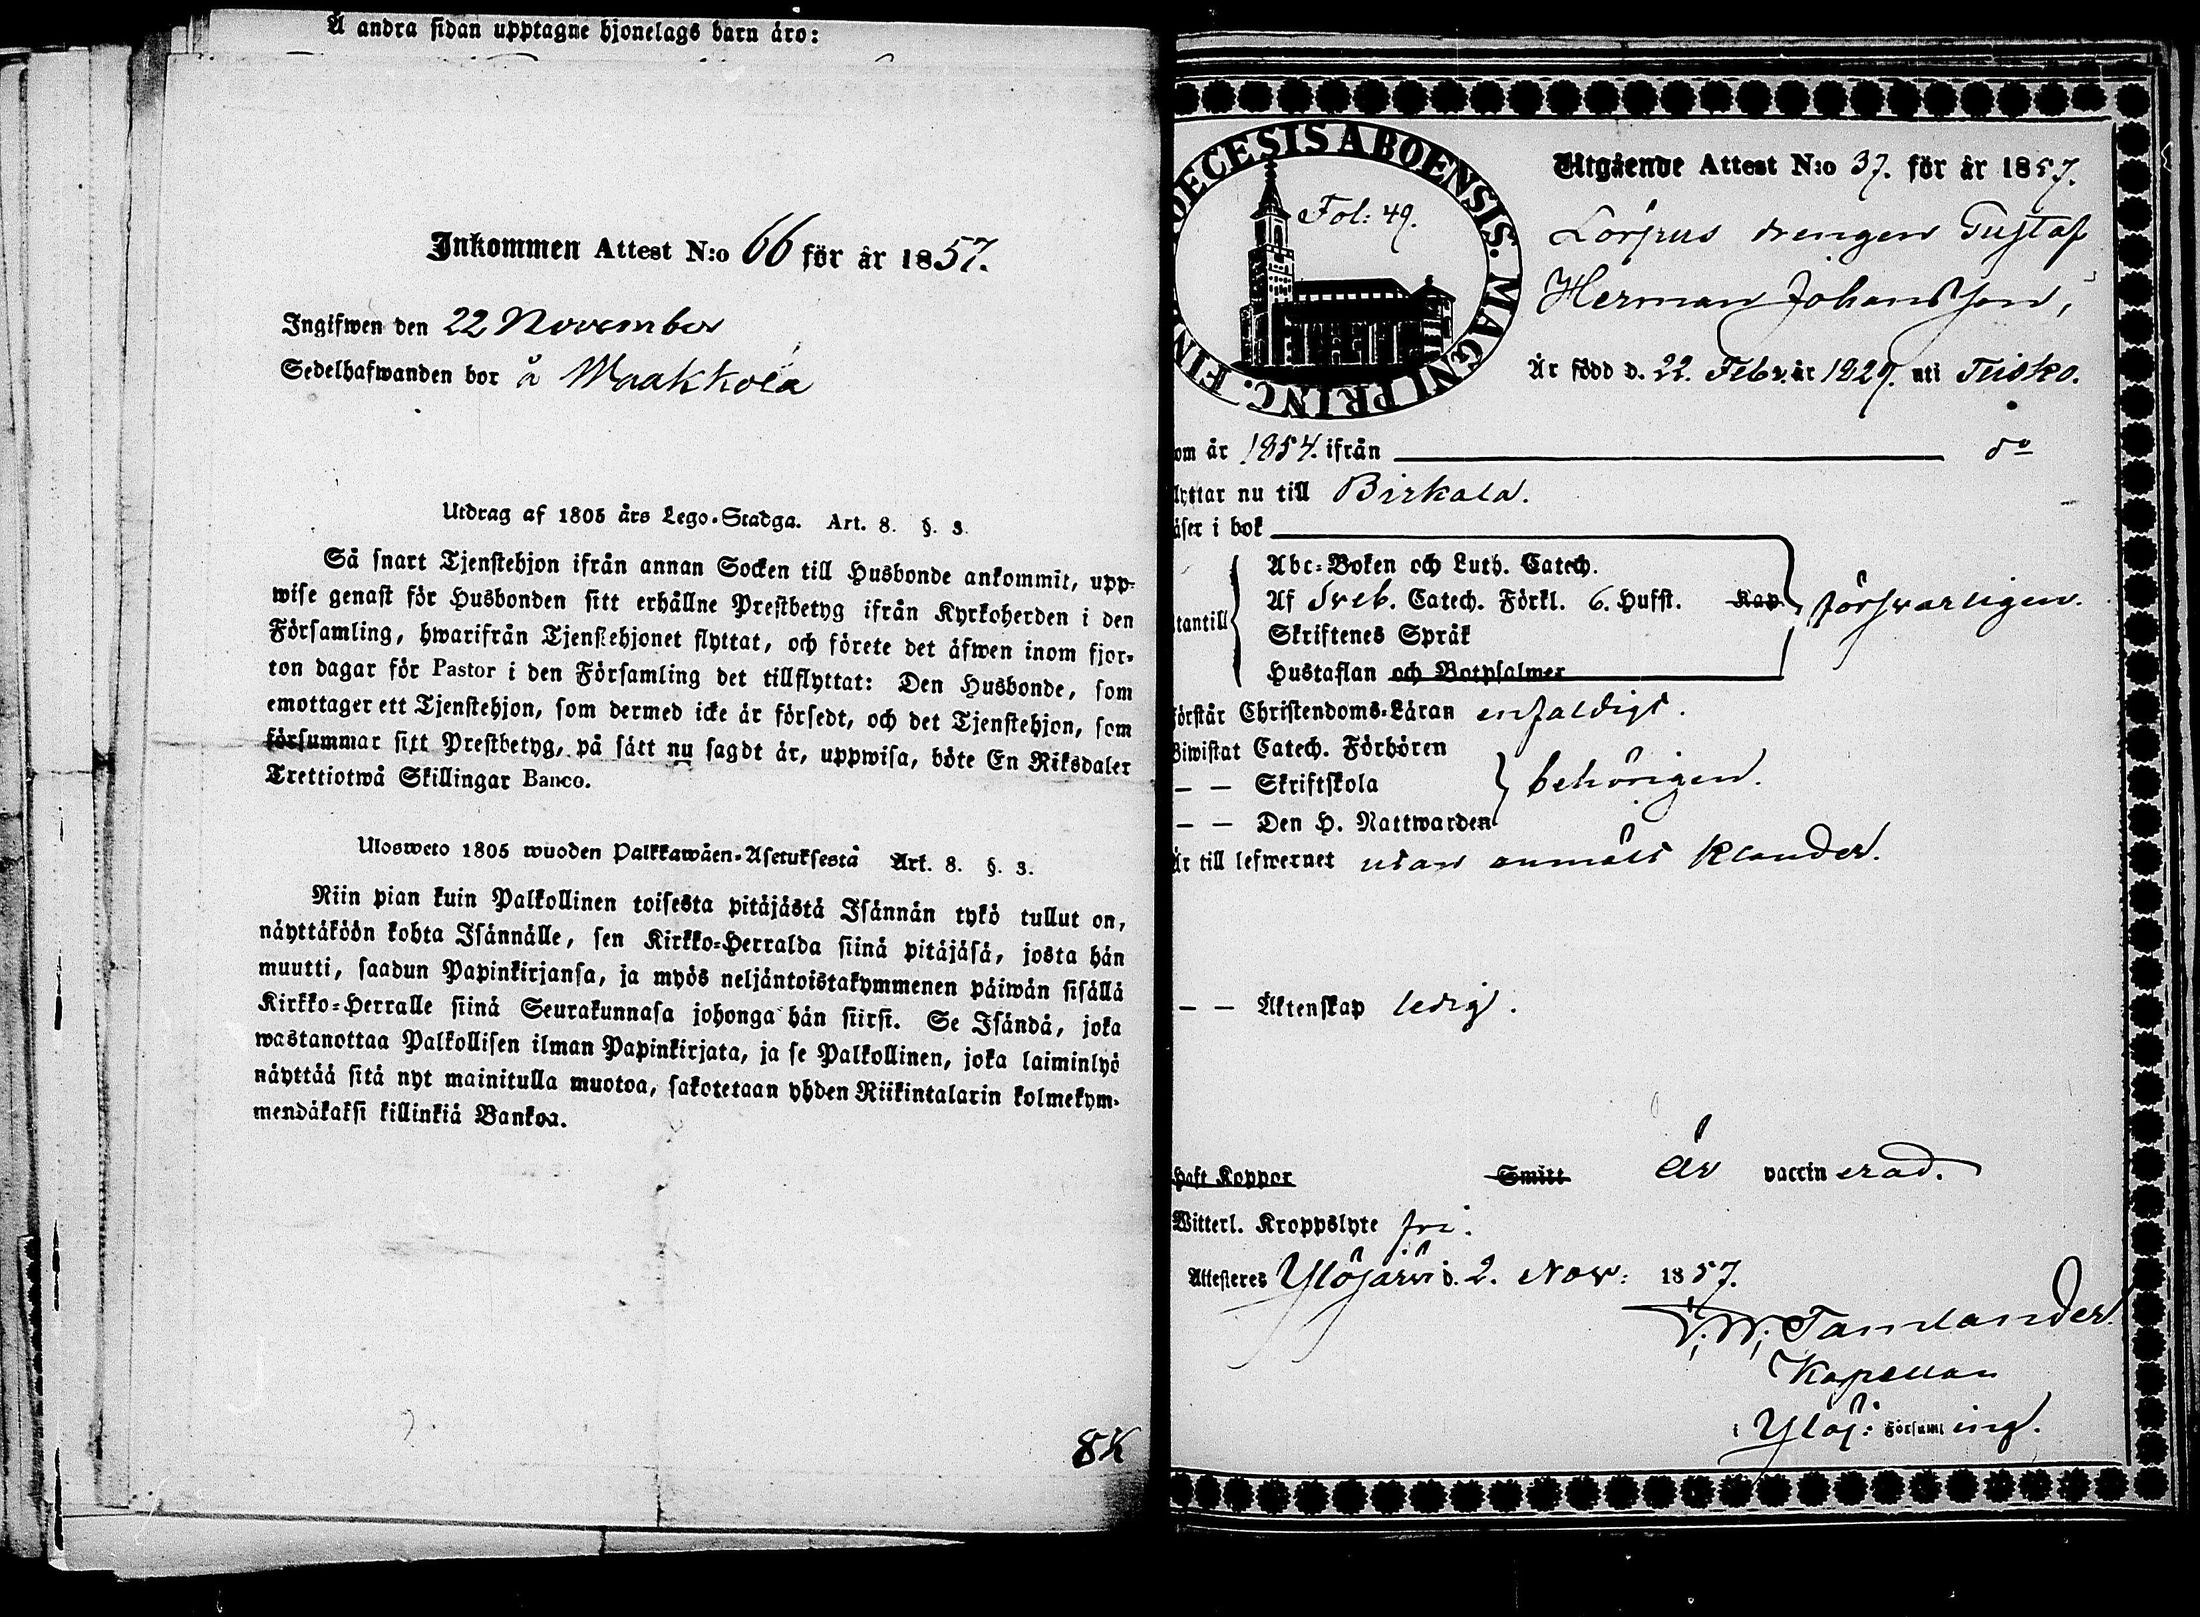 Å andra sidan upptagne hjonelags barn äro:
Inkommen Attest N:o 66 för år 1857.
Ingifwen den 22 November
Sedelhafwanden bor å Maakkola
Utdrag af 1805 års Lego-Stadga. Art. 8. §. 3.
Så snart Tjenstehjon ifrån annan Socken till Husbonde ankommit, upp-
wise genast för Husbonden sitt erhållne Prestbetyg ifrån Kyrkoherden i den
Församling, hwarifrån Tjenstehjonet flyttat, och förete det äfwen inom fjor-
ton dagar för Pastor i den Församling det tillflyttat: Den Husbonde, som
emottager ett Tjenstehjon, som dermed icke är försedt, och det Tjenstehjon, som
försummar sitt Prestbetyg, på sätt nu sagdt är, uppwisa, böte En Riksdaler
Trettiotwå Skillingar Banco.
Ulosweto 1805 wuoden Palkkawäen-Asetuksestä Art. 8. §. 3.
Niin pian kuin Palkollinen toisesta pitäjästä Isännän tykö tullut on,
näyttäköön kohta Isännälle, sen Kirkko-Herralda siinä pitäjäsä, josta hän
muutti, saadun Papinkirjansa, ja myös neljäntoistakymmenen päiwän sisällä
Kirkko-Herralle siinä Seurakunnasa johonga hän siirsi. Se Isändä, joka
wastanottaa Palkollisen ilman Papinkirjata, ja se Palkollinen, joka laiminlyö
näyttää sitä nyt mainitulla muotoa, sakotetaan yhden Riikintalarin kolmekym-
mendäkaksi killinkiä Bankoa.
8K
DECESIS ABOENSIS. MAGNI PRINC. FIN
Fol: 49.
Utgående Attest N:o 37. för år 1857.
drengen Gustaf
Herman Johansson,
Är född d. 22. Febr. år 1829. uti Teisko.
om år 1854. ifrån do
lyttar nu till Birkala.
äser i bok
Abc-Boken och Luth. Catech.
Af Sveb. Catech. Förkl. 6. Hufst. Kap.
tantill
Skriftenes Språk
Hustaflan och Botpsalmer
försvarligen.
örstår Christendoms-Läran enfaldigt.
Biwistat Catech. Förhören
— — Skriftskola
— — Den H. Nattwarden
behörigen.
Är till lefwernet utan anmält klander.
— — Äktenskap ledig.
Haft Koppor Smitt är vaccinerad.
Witterl. Kroppslyte fri.
Attesteres Ylöjärvi d. 2. Nov: 1857.
Tamlander
Kapellan
i Ylöj: Församling.